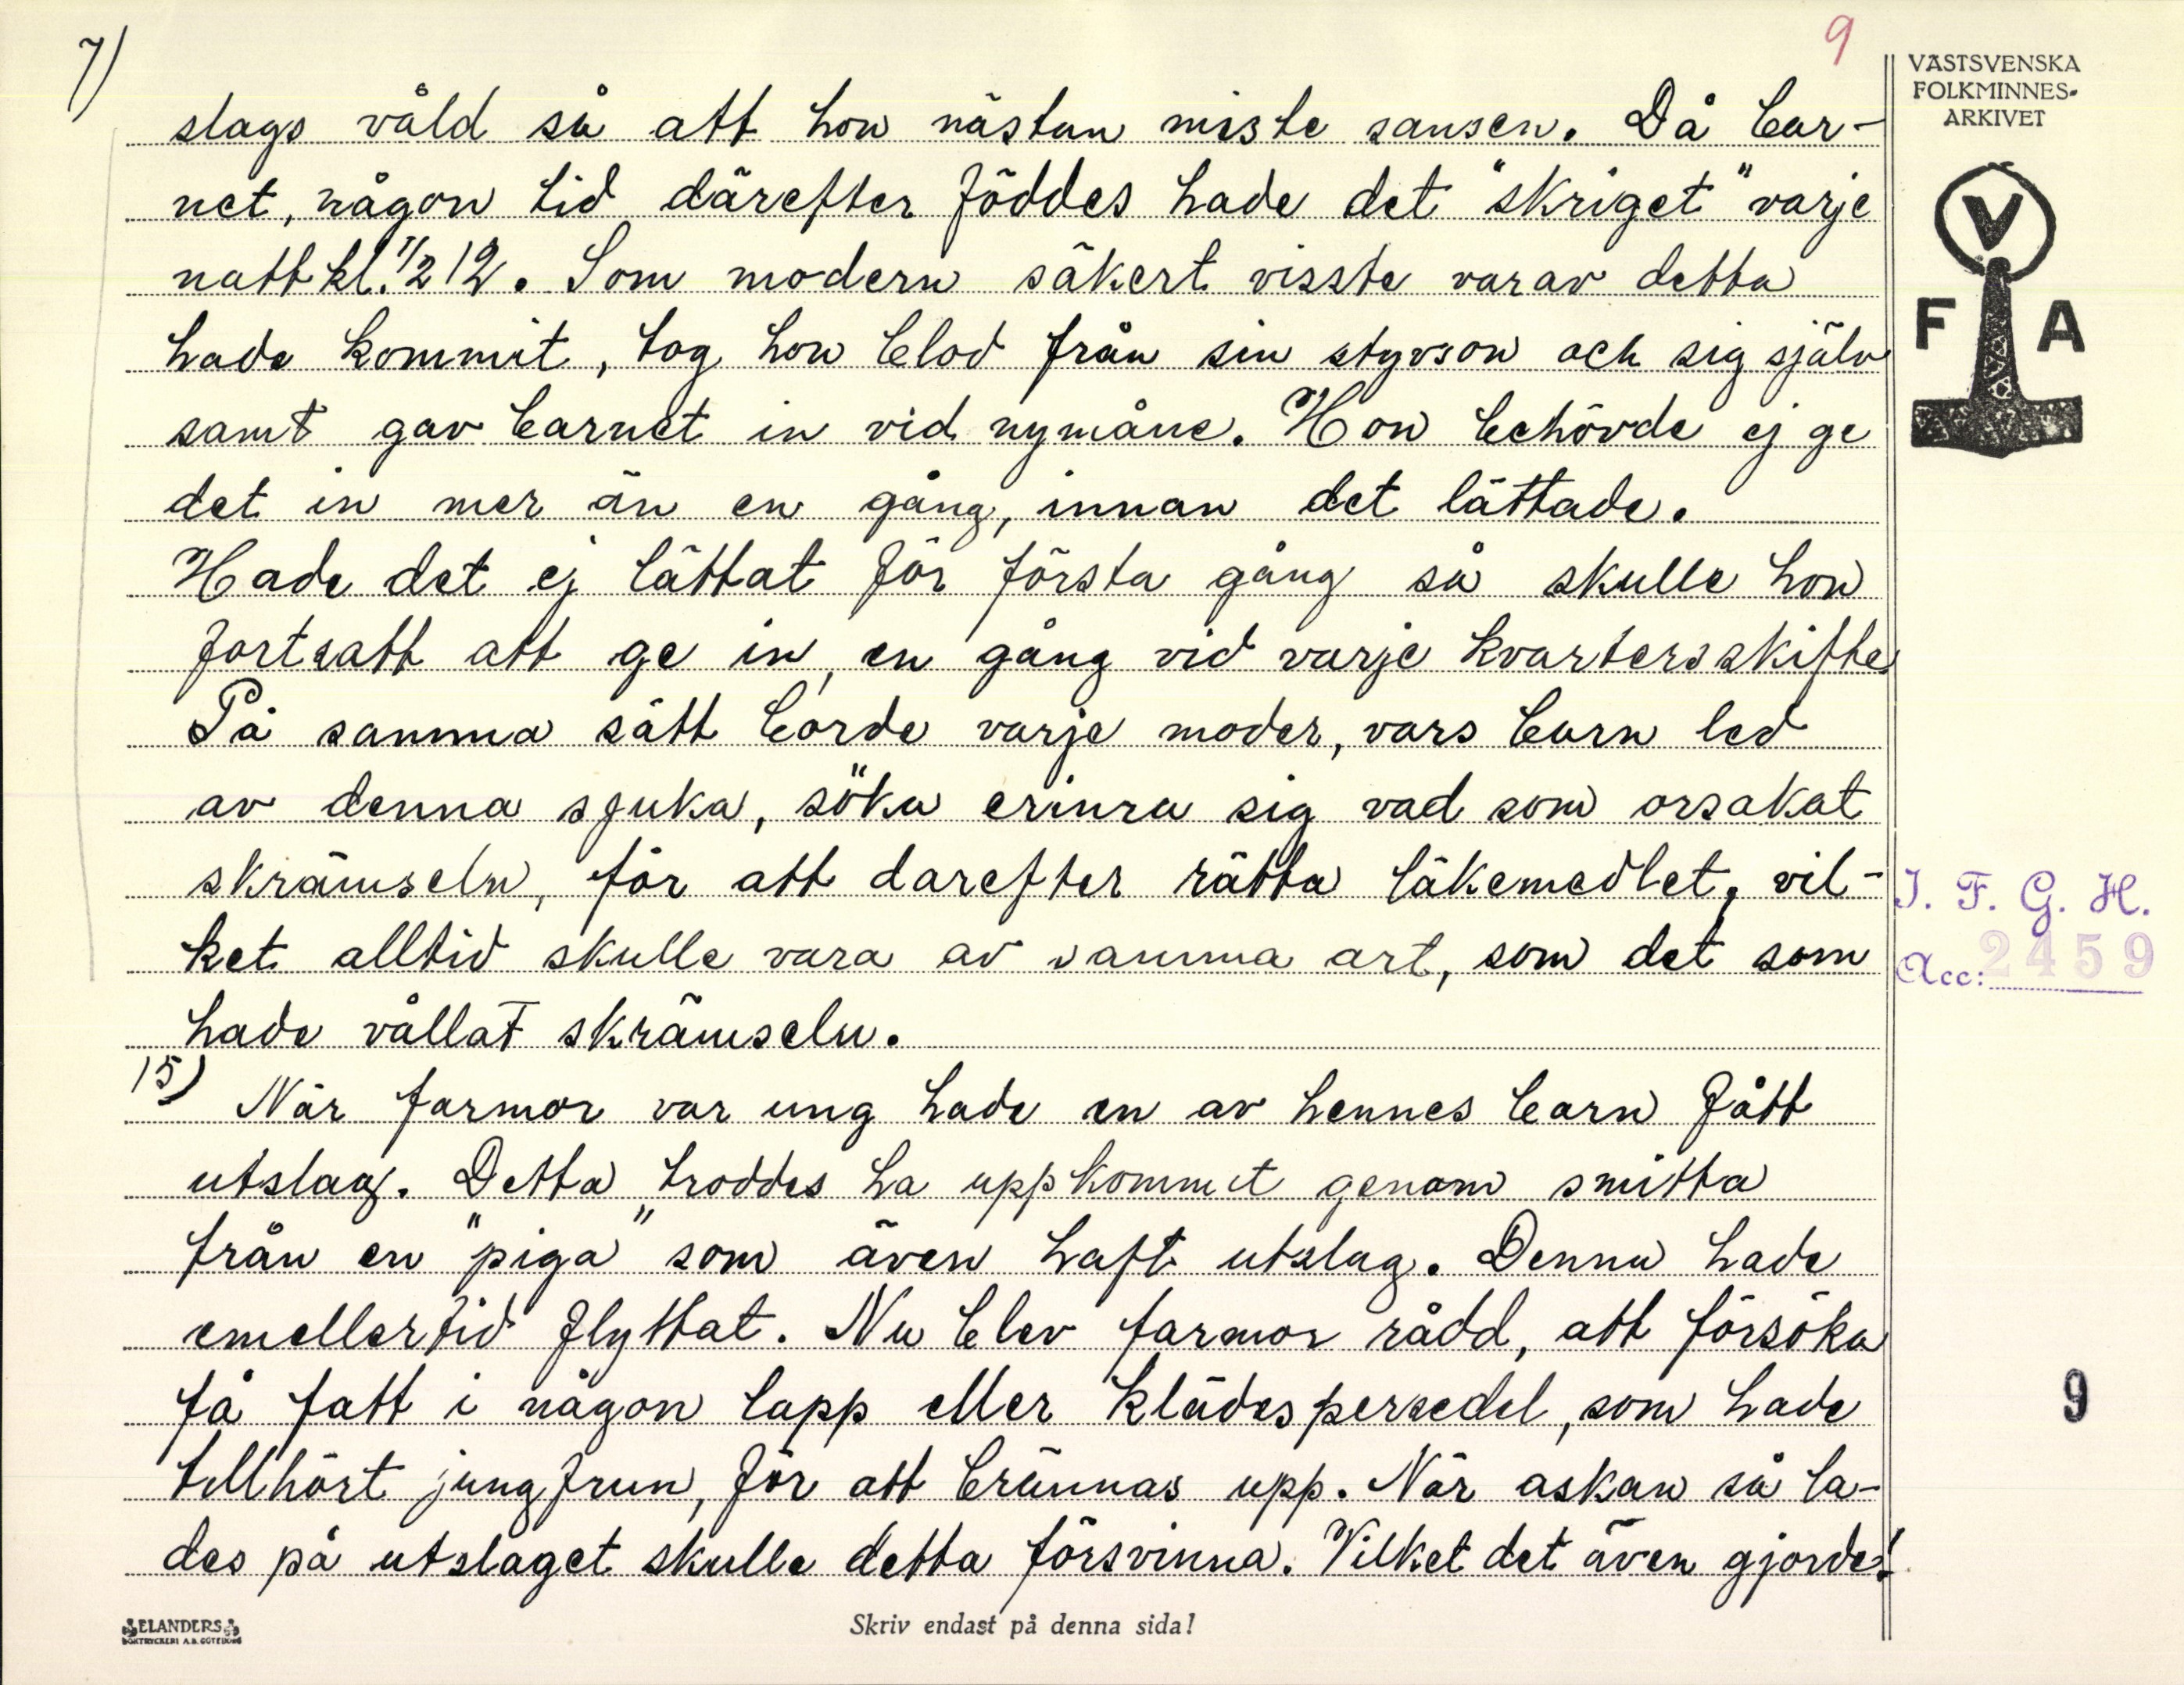 7)
9
VÄSTSVENSKA
FOLKMINNES-
ARKIVET
slags våld så att hon nästan miste sansen. Då bar-
net, någon tid därefter föddes hade det "skriget" varje
natt kl. 1/2 12. Som modern säkert visste varav detta
hade kommit, tog hon blod från sin styvson och sig själv
samt gav barnet in vid nymåne. Hon behövde ej ge
det in mer än en gång, innan det lättade.
Hade det ej lättat för första gång så skulle hon
fortsatt att ge in, en gång vid varje kvartersskifte
På samma sätt borde varje moder, vars barn led
av denna sjuka, söka erinra sig vad som orsakat
skrämseln, för att darefter rätta läkemedlet, vil-
ket alltid skulle vara av samma art, som det som
hade vållat skrämseln.
15) När farmor var ung hade en av hennes barn fått
utslag. Detta troddes ha uppkommit genom smitta
från en "piga" som även haft utslag. Denna hade
emellertid flyttat. Nu blev farmor rådd, att försöka
få fatt i någon lapp eller klädespersedel, som hade
tillhört jungfrun, för att brännas upp. När askan så la-
des på utslaget skulle detta försvinna. Vilket det även gjorde!
V
F A
I. F. G. H.
Acc: 2459
9
ELANDERS
BOKTRYCKERI A.B. GÖTEBORG
Skriv endast på denna sida!